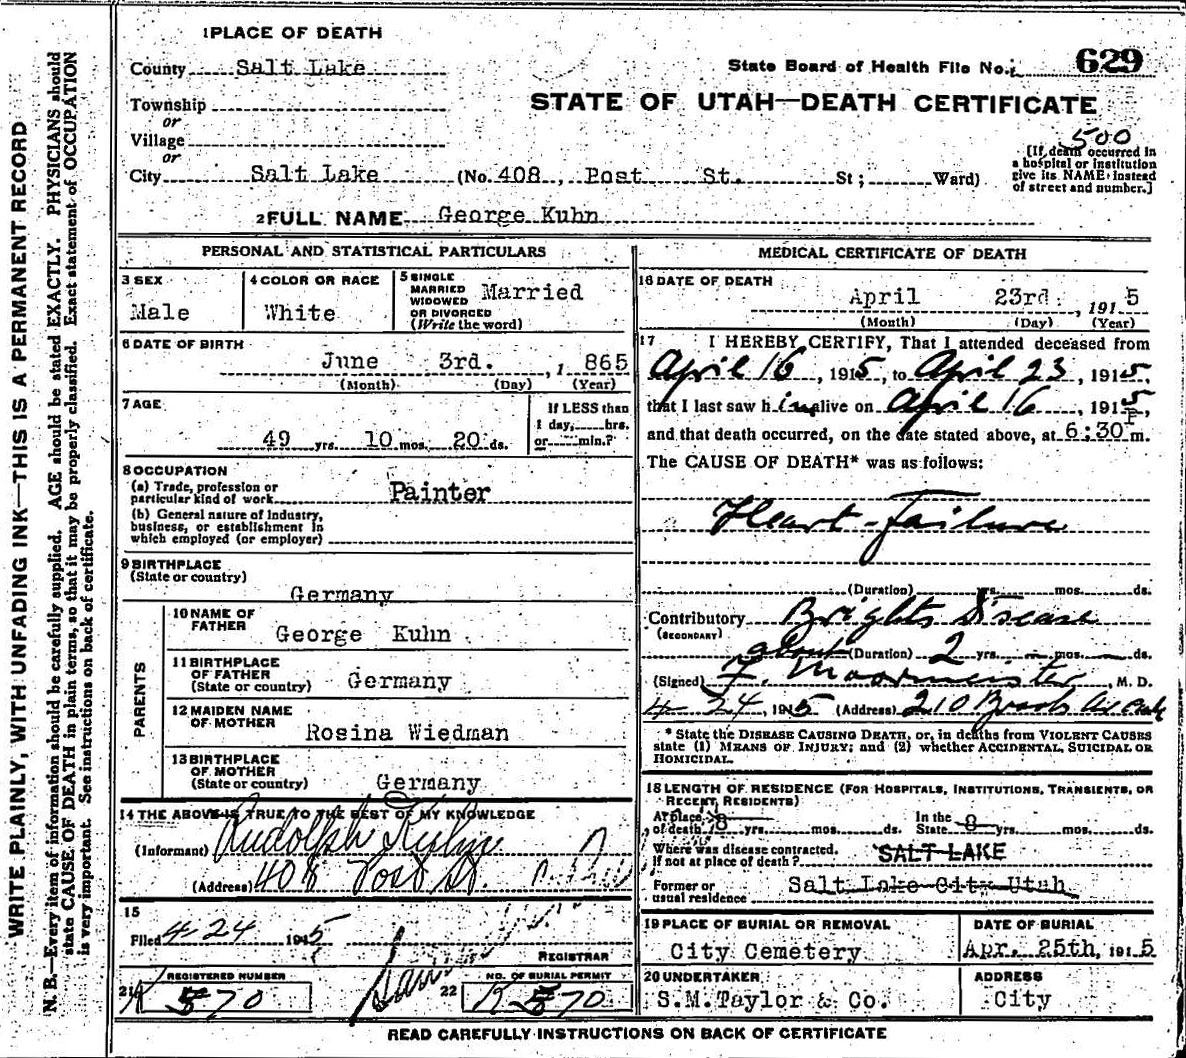 WRITE PLAINLY, WITH UNFADING INK—THIS IS A PERMANENT RECORD
N. B.—Every item of information should be carefully supplied. AGE should be stated EXACTLY. PHYSICIANS should
state CAUSE OF DEATH in plain terms, so that it may be properly classified. Exact statement of OCCUPATION
is very important. See instructions on back of certificate.
1 PLACE OF DEATH
County Salt Lake
State Board of Health File No. 629
Township
STATE OF UTAH—DEATH CERTIFICATE
or
Village
or
500
City Salt Lake (No. 408, Post St. St; Ward)
[If death occurred in
a hospital or institution
give its NAME instead
of street and number.]
2 FULL NAME George Kuhn
PERSONAL AND STATISTICAL PARTICULARS
3 SEX
Male
4 COLOR OR RACE
White
5 SINGLE
MARRIED
WIDOWED
OR DIVORCED
(Write the word)
Married
6 DATE OF BIRTH
June 3rd. , 1 865
(Month) (Day) (Year)
7 AGE
49 yrs. 10 mos. 20 ds.
If LESS than
1 day, hrs.
or min.?
8 OCCUPATION
(a) Trade, profession or
particular kind of work Painter
(b) General nature of Industry,
business, or establishment in
which employed (or employer)
9 BIRTHPLACE
(State or country)
Germany
PARENTS
10 NAME OF
FATHER
George Kuhn
11 BIRTHPLACE
OF FATHER
(State or country) Germany
12 MAIDEN NAME
OF MOTHER
Rosina Wiedman
13 BIRTHPLACE
OF MOTHER
(State or country) Germany
14 THE ABOVE IS TRUE TO THE BEST OF MY KNOWLEDGE
(Informant) Rudolph Kuhn
(Address) 408 Post St.
15
Filed 4-24 1915
REGISTRAR
REGISTERED NUMBER
21 K 570
NO. OF BURIAL PERMIT
22 K 570
MEDICAL CERTIFICATE OF DEATH
16 DATE OF DEATH
April 23rd. , 191 5
(Month) (Day) (Year)
17 I HEREBY CERTIFY, That I attended deceased from
April 16, 1915, to April 23, 1915,
that I last saw him alive on April 16, 1915,
and that death occurred, on the date stated above, at 6:30 P m.
The CAUSE OF DEATH* was as follows:
Heart-Failure
(Duration) yrs. mos. ds.
Contributory Brights Disease
(SECONDARY)
about (Duration) 2 yrs. — mos. — ds.
(Signed) F. Moormeister, M. D.
4 24, 1915 (Address) 210
* State the DISEASE CAUSING DEATH, or, in deaths from VIOLENT CAUSES
state (1) MEANS OF INJURY; and (2) whether ACCIDENTAL, SUICIDAL OR
HOMICIDAL.
18 LENGTH OF RESIDENCE (FOR HOSPITALS, INSTITUTIONS, TRANSIENTS, OR
RECENT RESIDENTS)
At place
of death 8 yrs. mos. ds.
In the
State 8 yrs. mos. ds.
Where was disease contracted,
if not at place of death? SALT LAKE
Former or
usual residence Salt Lake City Utah
19 PLACE OF BURIAL OR REMOVAL
City Cemetery
DATE OF BURIAL
Apr. 25th, 191 5
20 UNDERTAKER
S.M.Taylor & Co.
ADDRESS
City
READ CAREFULLY INSTRUCTIONS ON BACK OF CERTIFICATE